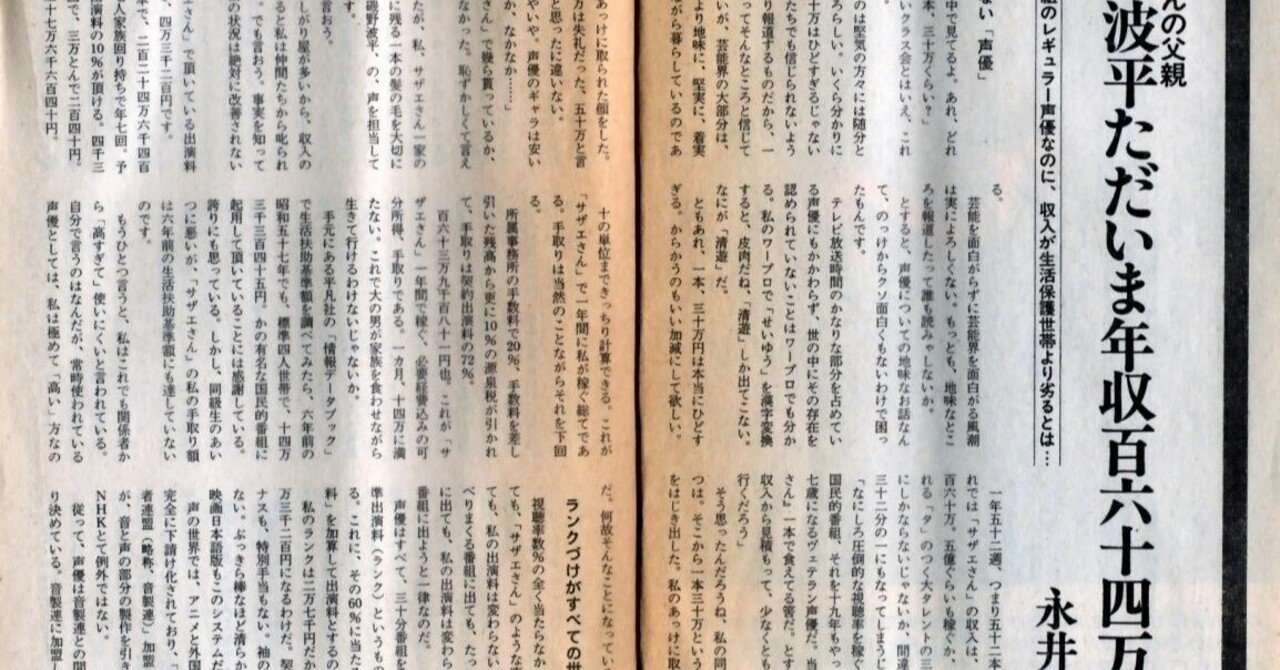 んの父親
組のレギュラー声優なのに、収入が生活保護世帯より劣るとは…
波平ただいま年収百六十四万
永井
ない「声優」
中で見てるよ。あれ、どれ
本、三十万くらい？」
いクラス会とはいえ、これ
のは堅気の方々には随分と
らしい。いくら分かりに
十万はひどすぎるじゃない
たちでも信じられないよう
り報道するものだから、一
ってそんなところと信じて
いが、芸能界の大部分は、
より地味に、堅実に、着実
ながら暮らしているのであ
る。
芸能を面白がらずに芸能界を面白がる風潮
は実によろしくない。もっとも、地味なとこ
ろを報道したって誰も読みゃしないか。
とすると、声優についての地味なお話なん
て、のっけからクソ面白くもないわけで困っ
たもんです。
テレビ放送時間のかなりな部分を占めてい
る声優にもかかわらず、世の中にその存在を
認められていないことはワープロでも分か
る。私のワープロで「せいゆう」を漢字変換
すると、皮肉だね、「清遊」しか出てこない。
なにが「清遊」だ。
ともあれ、一本、三十万円は本当にひどす
ぎる。からかうのもいい加減にして欲しい。
一年五十二週、つまり五十二本
れでは「サザエさん」の収入は、
百六十万。五億ぐらいも稼ぐか、
れる「タ」のつく大タレントの三
にしかならないじゃないか、間違
三十二分の一にもなってしまうじ
「なにしろ圧倒的な視聴率を稼ぐ
国民的番組、それを十九年もやっ
七歳になるヴェテラン声優だ。当
さん」一本で食えてる筈だ。とす
収入から見積もって、少なくとも
行くだろう」
そう思ったんだろうね、私の同
つは。そこから一本三十万という
をはじき出した。私のあっけに取
あっけに取られた顔をした。
万は失礼だった、五十万と言
と思ったに違いない。
やいや、声優のギャラは安い
か、なかなか……」
さん」で幾ら貰っているか、
なかった。恥ずかしくて言え
たが、私、サザエさん一家の
に残る一本の髪の毛を大切に
磯野波平、の、声を担当して
言おう。
しがり屋が多いから、収入の
ると私は仲間たちから叱られ
でも言おう。事実を知って
の状況は絶対に改善されない
エさん」で頂いている出演料
、四万三千二百円です。
本で、二百二十四万六千四百
人家族回り持ちで年七回。予
演料の10％が頂ける。四千三
で、三万とんで二百四十円。
十七万六千六百四十円。
十の単位まできっちり計算できる。これが
「サザエさん」で一年間に私が稼ぐ総てであ
る。手取りは当然のことながらそれを下回
る。
所属事務所の手数料で20％、手数料を差し
引いた残高から更に10％の源泉税が引かれ
て、手取りは契約出演料の72％。
百六十三万九千百八十一円也。これが「サ
ザエさん」一年間で稼ぐ、必要経費込みの可
分所得、手取りである。一カ月、十四万に満
たない。これで大の男が家族を食わせながら
生きて行けるわけないじゃないか。
手元にある平凡社の「情報データブック」
で生活扶助基準額を調べてみたら、六年前の
昭和五十七年でも、標準四人世帯で、十四万
三千三百四十五円。かの有名な国民的番組に
起用して頂いていることには感謝している。
誇りにも思っている。しかし、同級生のあい
つに悪いが、「サザエさん」の私の手取り額
は六年前の生活扶助基準額にも達していない
のです。
もうひとつ言うと、私はこれでも関係者か
ら「高すぎて」使いにくいと言われている。
自分で言うのはなんだが、常時使われている
声優としては、私は極めて「高い」方なの
だ。何故そんなことになってい
ランクづけがすべての世
視聴率数％の全く当たらなか
ても、「サザエさん」のような
ても、私の出演料は変わらない
べりまくる番組に出ても、たっ
に出ても、私の出演料は変わら
番組に出ようと一律なのだ。
声優はすべて、三十分番組を
準出演料（ランク）というも
る。これに、その60％に当た
料」を加算して出演料とするの
私のランクは二万七千円だか
万三千二百円になるわけだ。契
ナスも、特別手当もない。袖の
ない。ぶっきら棒なほど清らか
映画日本語版もこのシステムだ
声の世界では、アニメと外国
完全に下請け化されており、「
者連盟（略称、音製連）」加盟
が、音と声の部分の製作を引き
NHKとて例外ではない。
従って、声優は音製連との間
り決めている。音製連に加盟